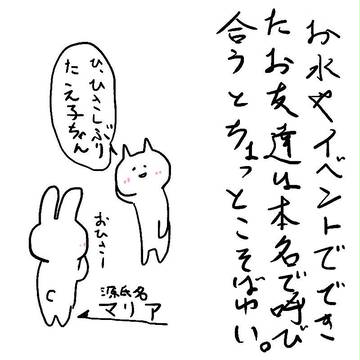 お水やイベントででき
たお友達は本名で呼び
合うとちょっとこそばゆい。
ひ、ひさしぶり
たえ子ちゃん
おひさー
源氏名
マリア